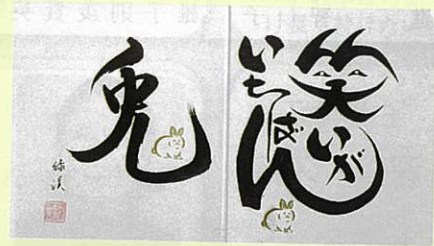 笑いが
いちばん
兎